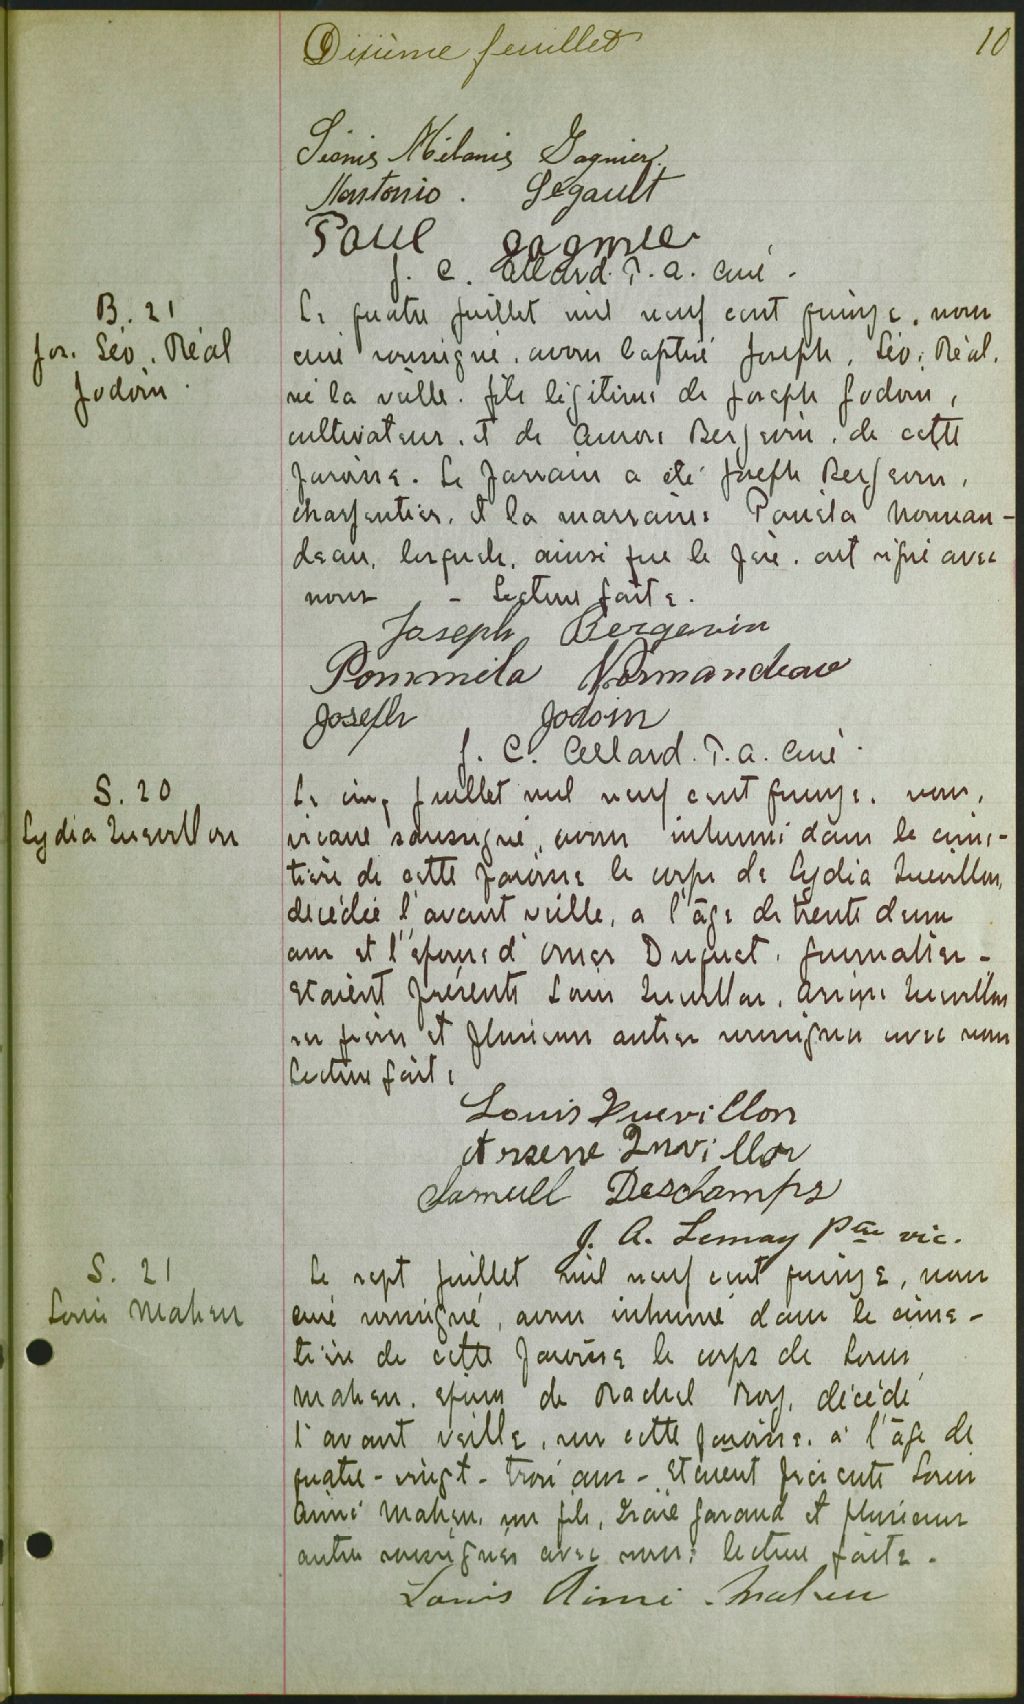 Dixième feuillet
10
Mélanie Gagnier
Antonio. Légault
Paul Gagnier
J. C. Allard. P. A. Curé.
B. 21
Jos. Léo. Réal
Jodoin
Le quatre juillet mil neuf cent quinze, nous
curé soussigné, avons baptisé Joseph, Léo, Réal,
né la veille, fils légitime de Joseph Jodoin,
cultivateur, et de Aurore Bergevin, de cette
paroisse. Le parrain a été Joseph Bergevin,
charpentier, et la marraine Paméla Norman-
deau, lesquels, ainsi que le père, ont signé avec
nous - Lecture faite.
Joseph Bergevin
Pommela Normandeau
Joseph Jodoin
J. C. Allard. P. A. Curé.
S. 20
Lydia Quevillon
Le cinq juillet mil neuf cent quinze, nous,
vicaire soussigné, avons inhumé dans le cime-
tière de cette paroisse le corps de Lydia Quevillon,
décédée l'avant veille, a l'âge de trente deux
ans et l'épouse d'Omer Duquet, journalier -
Etaient présents Louis Quevillon, Arsène Quevillon
ses frères et plusieurs autres soussignés avec nous
Lecture faite
Louis Quevillon
Arsene Quevillon
Samuell Deschamps
J. A. Lemay Ptre vic.
S. 21
Louis Maheu
Le sept juillet mil neuf cent quinze, nous
curé soussigné, avons inhumé dans le cime-
tière de cette paroisse le corps de Louis
Maheu, époux de Rachel Roy, décédé
l'avant veille, en cette paroisse, à l'âge de
quatre-vingt-trois ans - Etaient présents Louis
Aimé Maheu, son fils, Isaïe Garaud et plusieurs
autres soussignés avec nous, lecture faite.
Louis Aimé Maheu